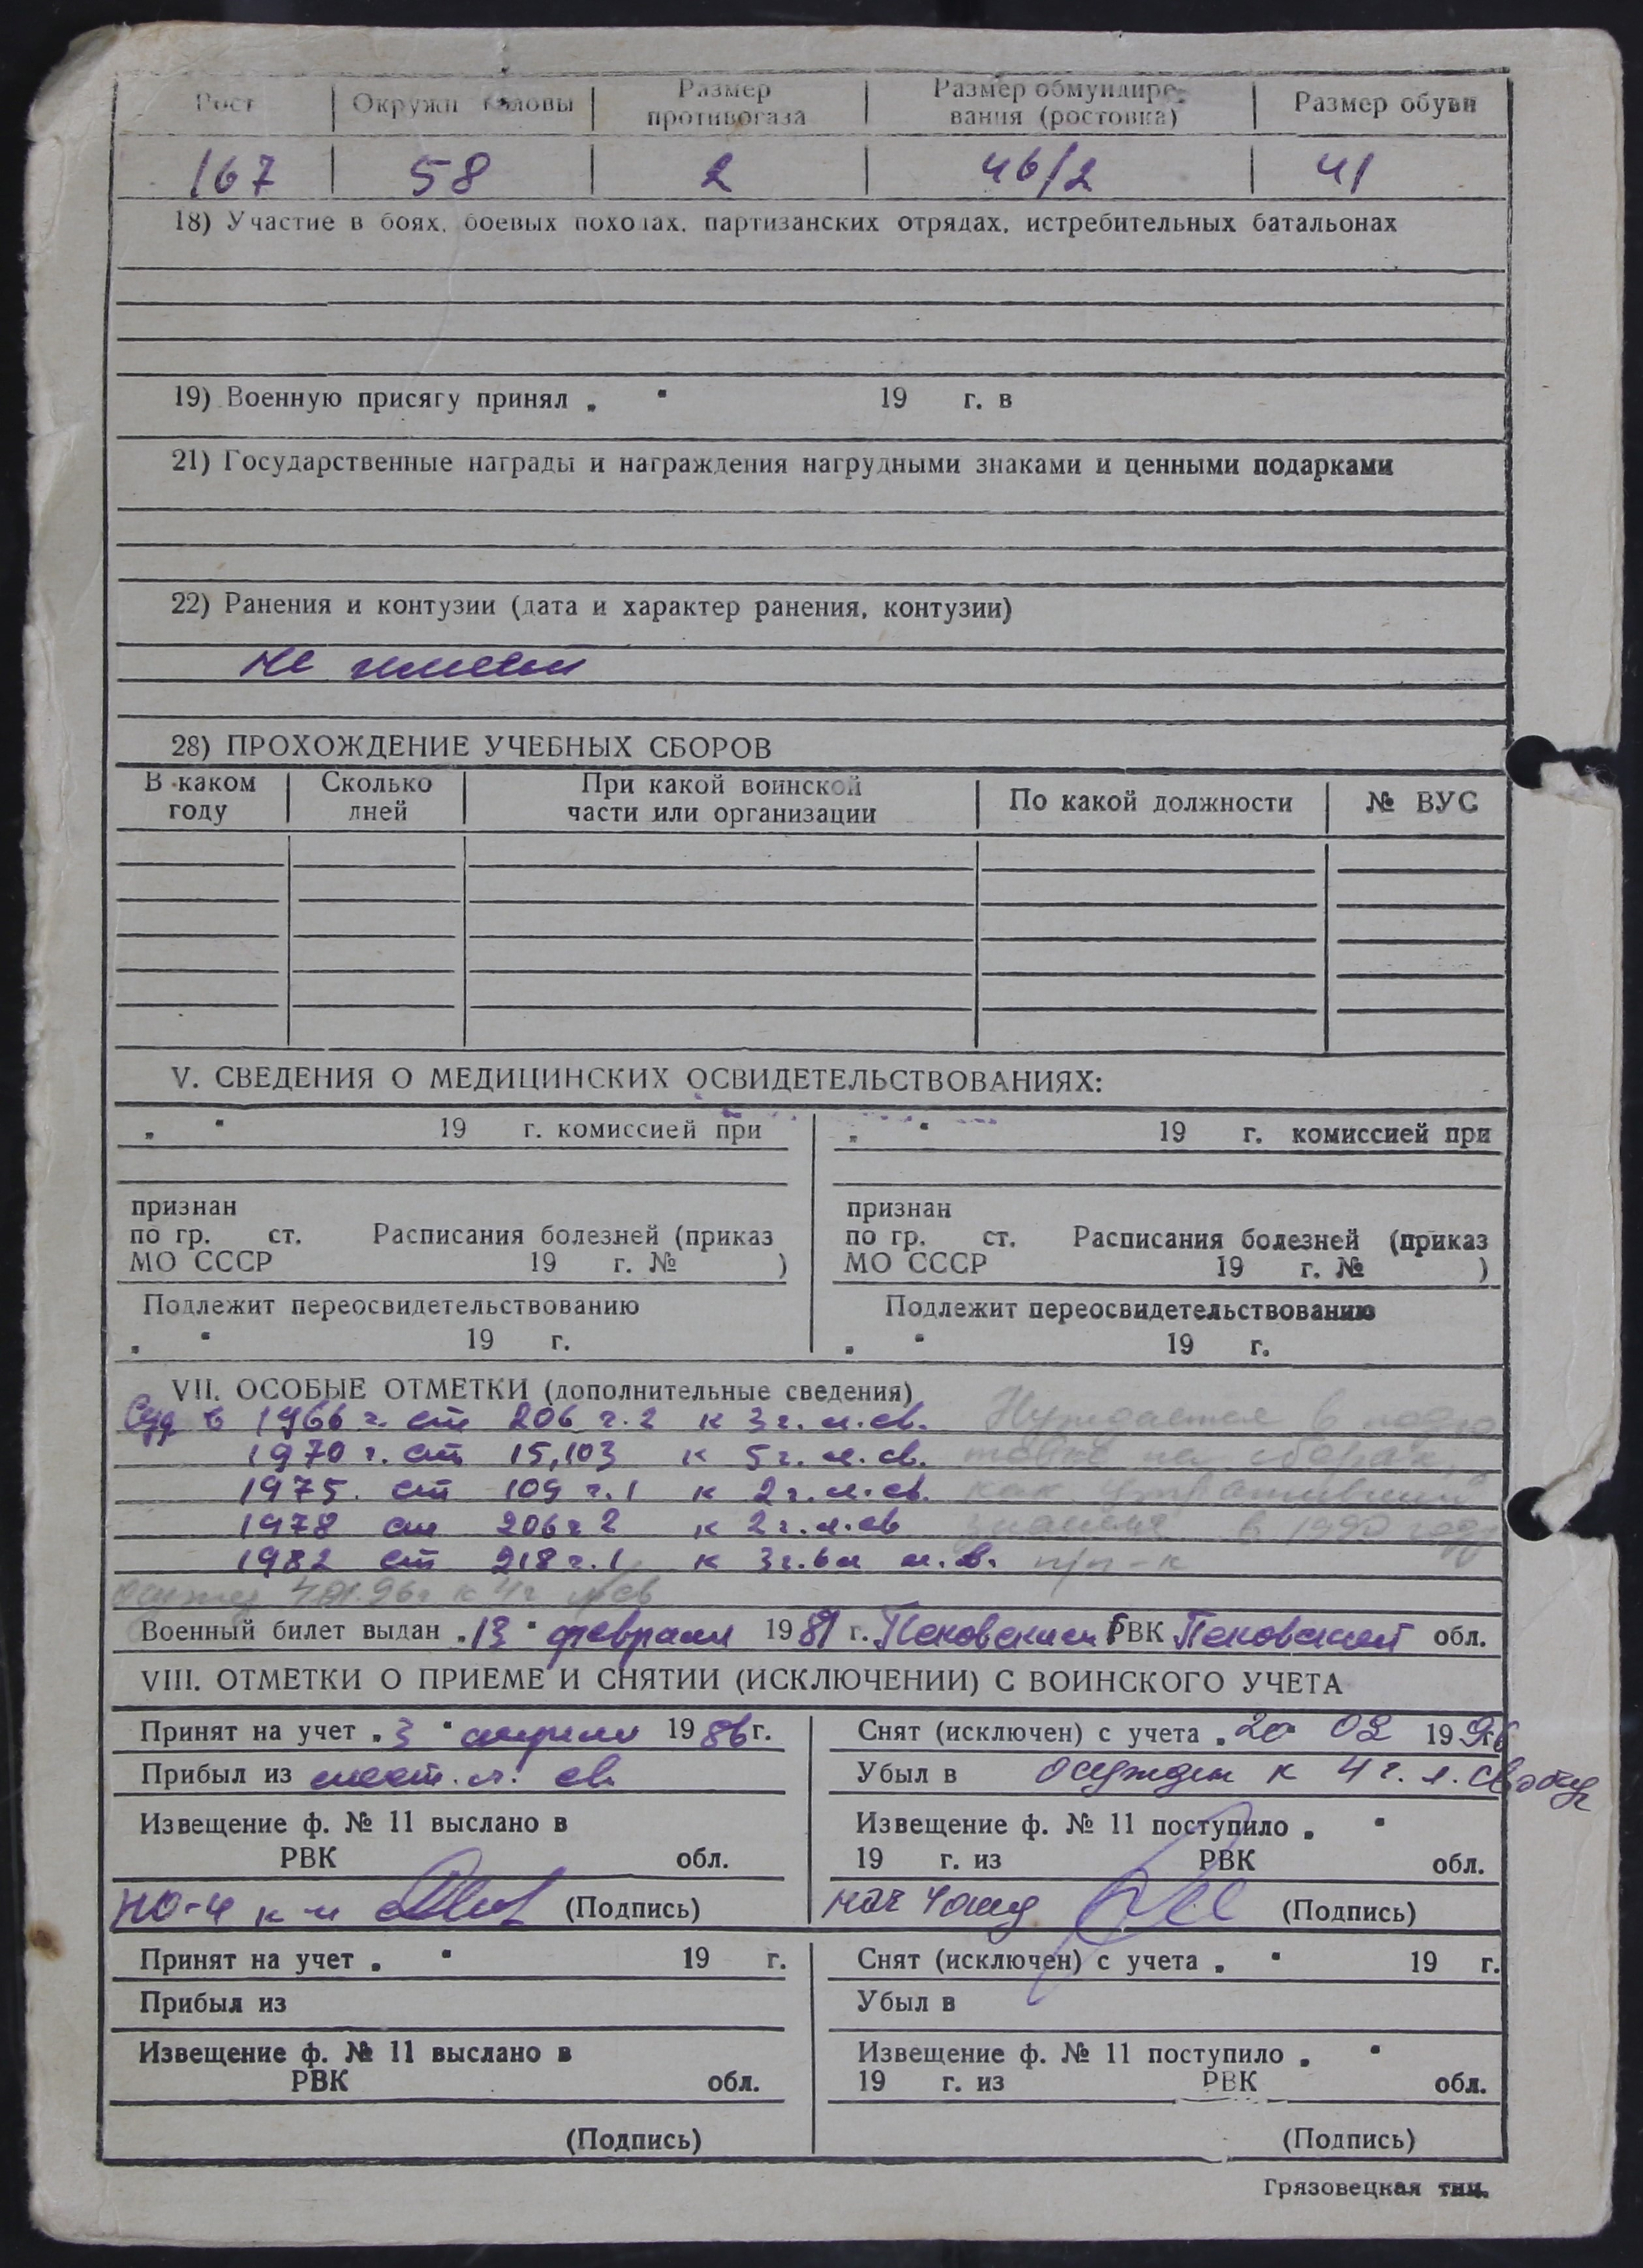 Рост Окружн головы Размер противогаза Размер обмундиро- вания (ростовка) Размер обуви
167 58 2 46/2 41
18) Участие в боях, боевых походах, партизанских отрядах, истребительных батальонах
19) Военную присягу принял „ " 19 г. в
21) Государственные награды и награждения нагрудными знаками и ценными подарками
22) Ранения и контузии (дата и характер ранения, контузии)
не имеет
28) ПРОХОЖДЕНИЕ УЧЕБНЫХ СБОРОВ
В каком году Сколько дней При какой воинской части или организации По какой должности № ВУС
V. СВЕДЕНИЯ О МЕДИЦИНСКИХ ОСВИДЕТЕЛЬСТВОВАНИЯХ:
„ " 19 г. комиссией при „ " 19 г. комиссией при
признан признан
по гр. ст. Расписания болезней (приказ по гр. ст. Расписания болезней (приказ
МО СССР 19 г. № ) МО СССР 19 г. № )
Подлежит переосвидетельствованию Подлежит переосвидетельствованию
„ " 19 г. „ " 19 г.
VII. ОСОБЫЕ ОТМЕТКИ (дополнительные сведения)
Суд в 1966 г. ст 206 ч. 2 к 3 г. л. св. Нуждается в подго
1970 г. ст 15,103 к 5 г. л. св. товке на сборах,
1975. ст 109 ч. 1 к 2 г. л. св. как утративший
1978 ст 206 ч 2 к 2 г. л. св знания в 1990 году
1982 ст 218 ч. 1 к 3 г. 6 м л. св. п/п-к
к 4 г л/св
Военный билет выдан „13" февраля 1981 г. Псковским ГВК Псковской обл.
VIII. ОТМЕТКИ О ПРИЕМЕ И СНЯТИИ (ИСКЛЮЧЕНИИ) С ВОИНСКОГО УЧЕТА
Принят на учет „3" апреля 1986 г. Снят (исключен) с учета „20 02 1996
Прибыл из мест. л. св. Убыл в осужден к 4 г. л. свободы
Извещение ф. № 11 выслано в Извещение ф. № 11 поступило „ "
РВК обл. 19 г. из РВК обл.
НО-4 к-н (Подпись) нач 4 отд (Подпись)
Принят на учет „ " 19 г. Снят (исключен) с учета „ " 19 г.
Прибыл из Убыл в
Извещение ф. № 11 выслано в Извещение ф. № 11 поступило „ "
РВК обл. 19 г. из РВК обл.
(Подпись) (Подпись)
Грязовецкая тип.